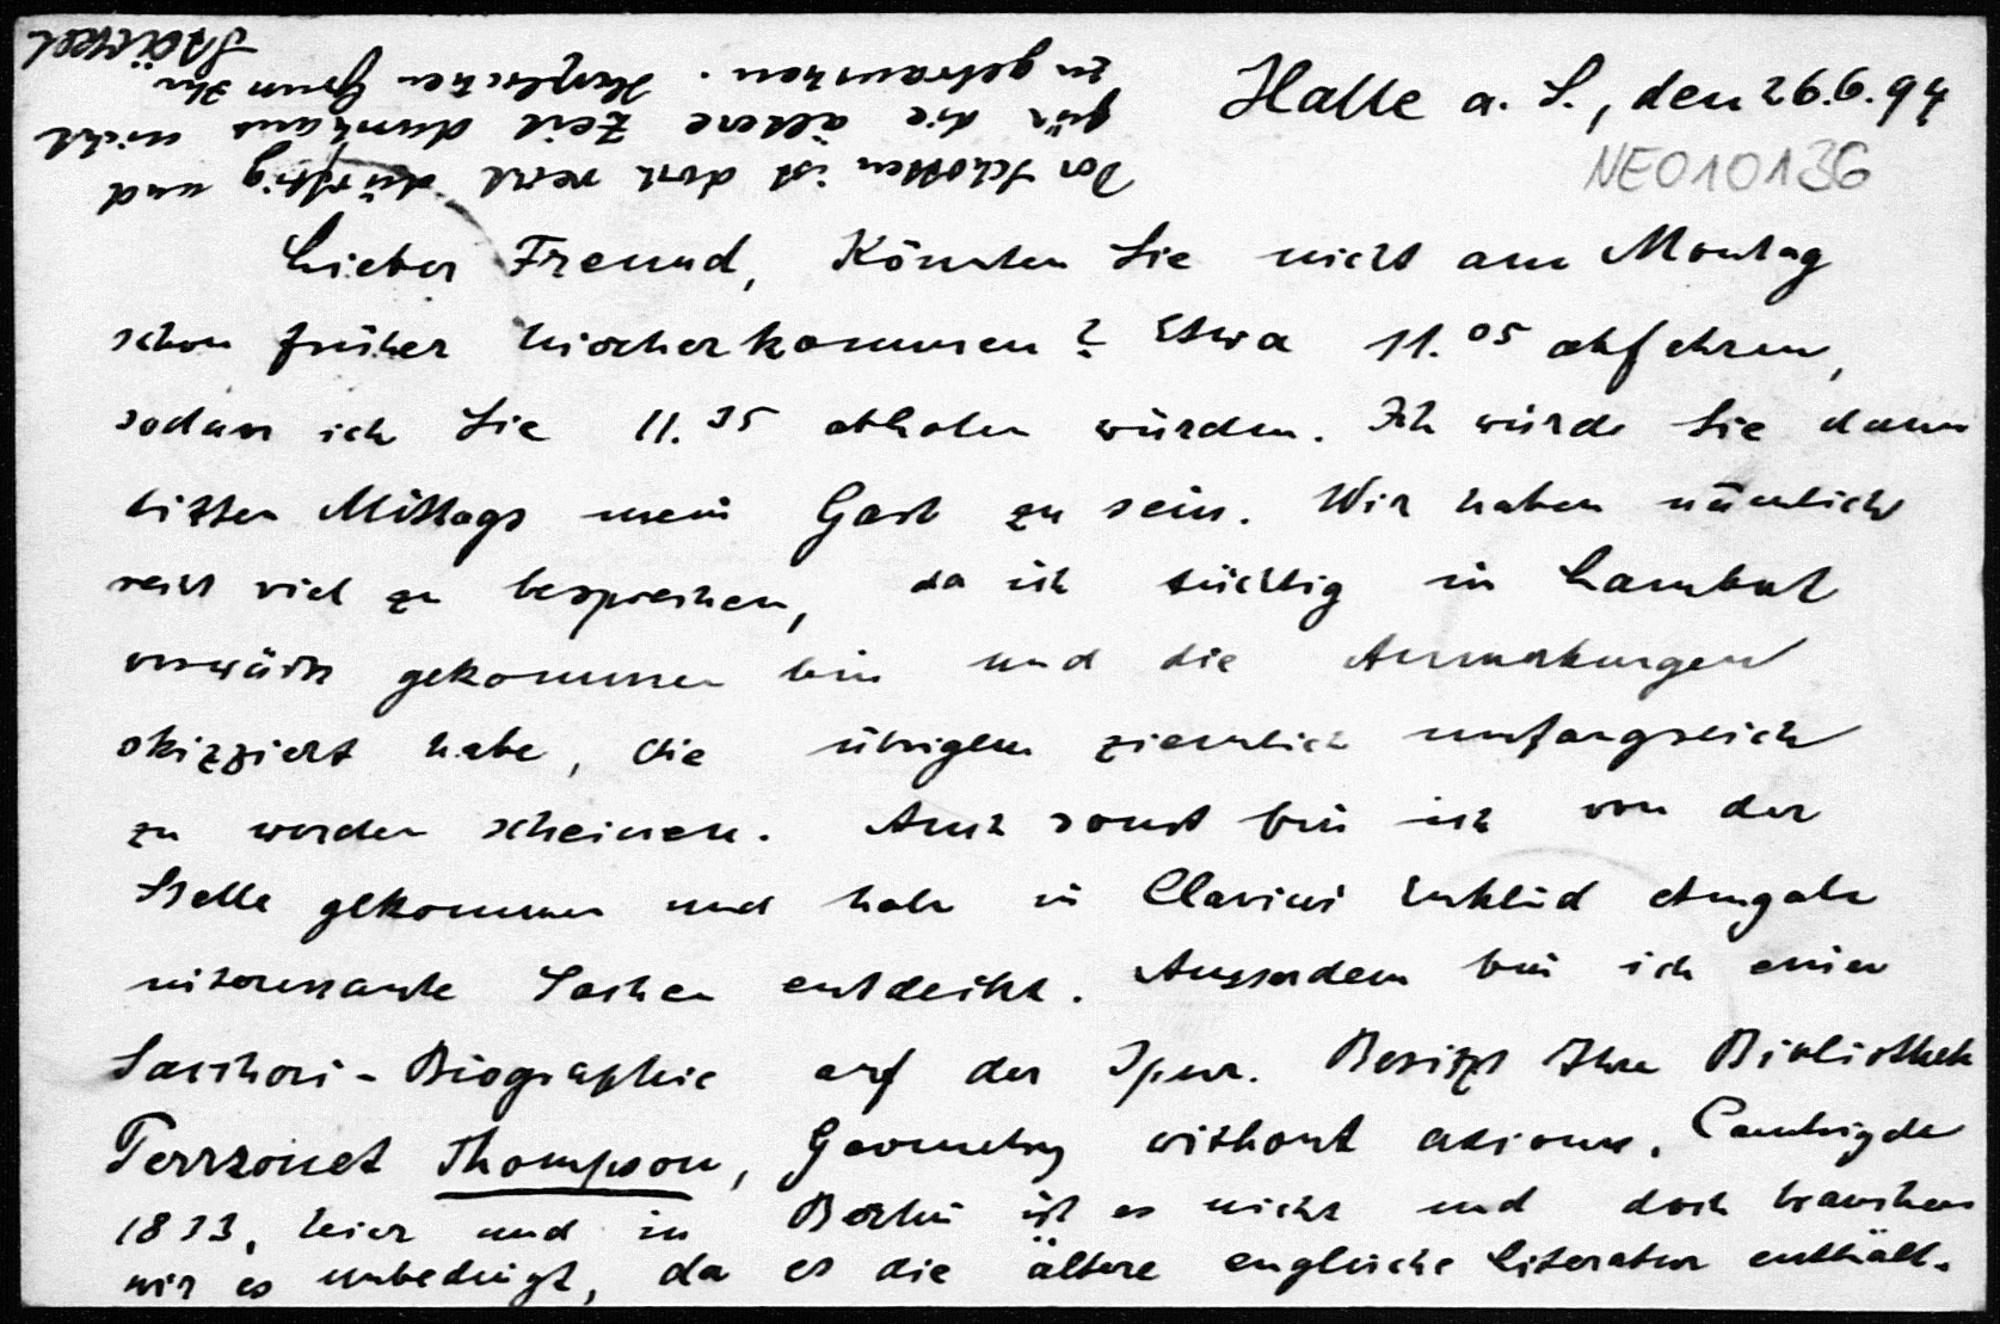 Halle a. S., den 26.6.94
NE010136
Lieber Freund, Könnten Sie nicht am Montag
schon früher hierherkommen? Etwa 11.05 abfahren,
sodass ich Sie 11.35 abholen würden. Ich würde Sie dann
bitten Mittags mein Gast zu sein. Wir haben nämlich
recht viel zu besprechen, da ich tüchtig in Lambert
vorwärts gekommen bin und die Anmerkungen
skizziert habe, die übrigens ziemlich umfangreich
zu werden scheinen. Auch sonst bin ich von der
Stelle gekommen und habe in Clavius Euklid
interessante Sachen entdeckt. Ausserdem bin ich einer
Saccheri-Biographie auf der Spur. Besitzt Ihre Bibliothek
Perronet Thompson, Geometry without axioms. Cambrigde
1833, hier und in Berlin ist es nicht und doch brauchen
wir es unbedingt, da es die ältere englische Literatur enthält.
Der Schotten ist doch recht dürftig und
für die ältere Zeit durchaus nicht
zu gebrauchen. Herzlichen Gruss Ihr
Stäckel